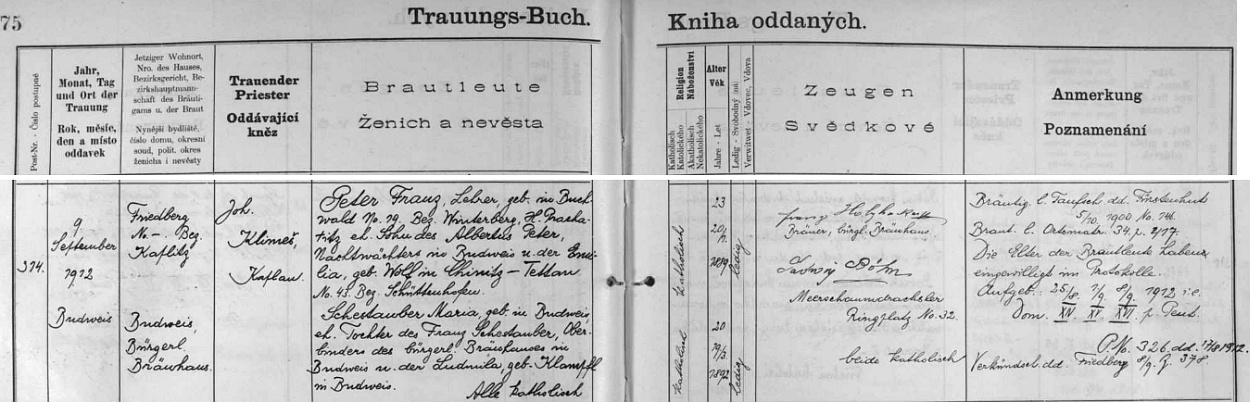 75
Trauungs-Buch.
Kniha oddaných.
Post-Nr. - Číslo postupné
Jahr,
Monat, Tag
und Ort der
Trauung
Rok, měsíc,
den a místo
oddavek
Jetziger Wohnort,
Nro. des Hauses,
Bezirksgericht, Be-
zirkshauptmann-
schaft des Bräuti-
gams u. der Braut
Nynější bydliště,
číslo domu, okresní
soud, polit. okres
ženicha i nevěsty
Trauender
Priester
Oddávající
kněz
Brautleute
Ženich a nevěsta
Religion
Náboženství
Katholisch
Katolického
Akatholisch
Nekatolického
Alter
Věk
Jahre - Let
Ledig - Svobodný
Verwitwet - Vdovec, Vdova
Zeugen
Svědkové
Anmerkung
Poznamenání
374.
9
September
1912
Budweis
Friedberg
No -. Bez.
Kaplitz
Budweis,
Bürgerl.
Bräuhaus.
Joh.
Klimeš,
Kaplan.
Peter Franz, Lehrer, geb. in Buch-
wald No. 19. Bez. Winterberg, H. Pracha-
titz eh. Sohn des Albertus Peter,
Nachtwächters in Budweis u. der
geb. Wolf in
No. 43. Bez. Schüttenhofen.
Schestauber Maria, geb. in Budweis,
eh. Tochter des Franz Schestauber, Ober-
binders des bürgerl. Bräuhauses in
Budweis u. der Ludmila, geb. Klampfl
in Budweis.
Alle katholisch
katholisch
23
ledig
katholisch
20
1892
ledig
Franz
Brauer, bürgl. Bräuhaus
Ludwig Böhm
Meerschaumdrechsler
Ringplatz No. 32.
beide katholisch
Bräutig. l. Taufsch. dd. Fürstenhut
5/10. 1900 No. 146.
Braut. l. Ortsmatr. 34. p. 217.
Die Elter der Brautleute haben
eingewilligt im Protokolle.
Aufgeb. 25/8. 1/9. 8/9. 1912 i.e.
Dom. XIV. XV. XVI. p. Pent.
P. No. 326. dd. 1912.
Verkündsch. dd. Friedberg 8/9. Z. 378.